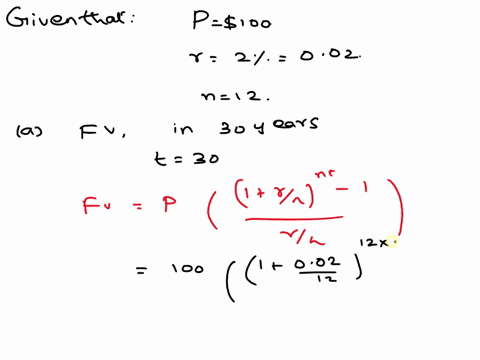 Given that: P=$100
r = 2% = 0.02.
n=12.
(a) Fv, in 30 years
t = 30
Fv = P ( ((1 + r/n)^nt - 1) / (r/n) )
= 100 ( (1 + 0.02/12)^12x